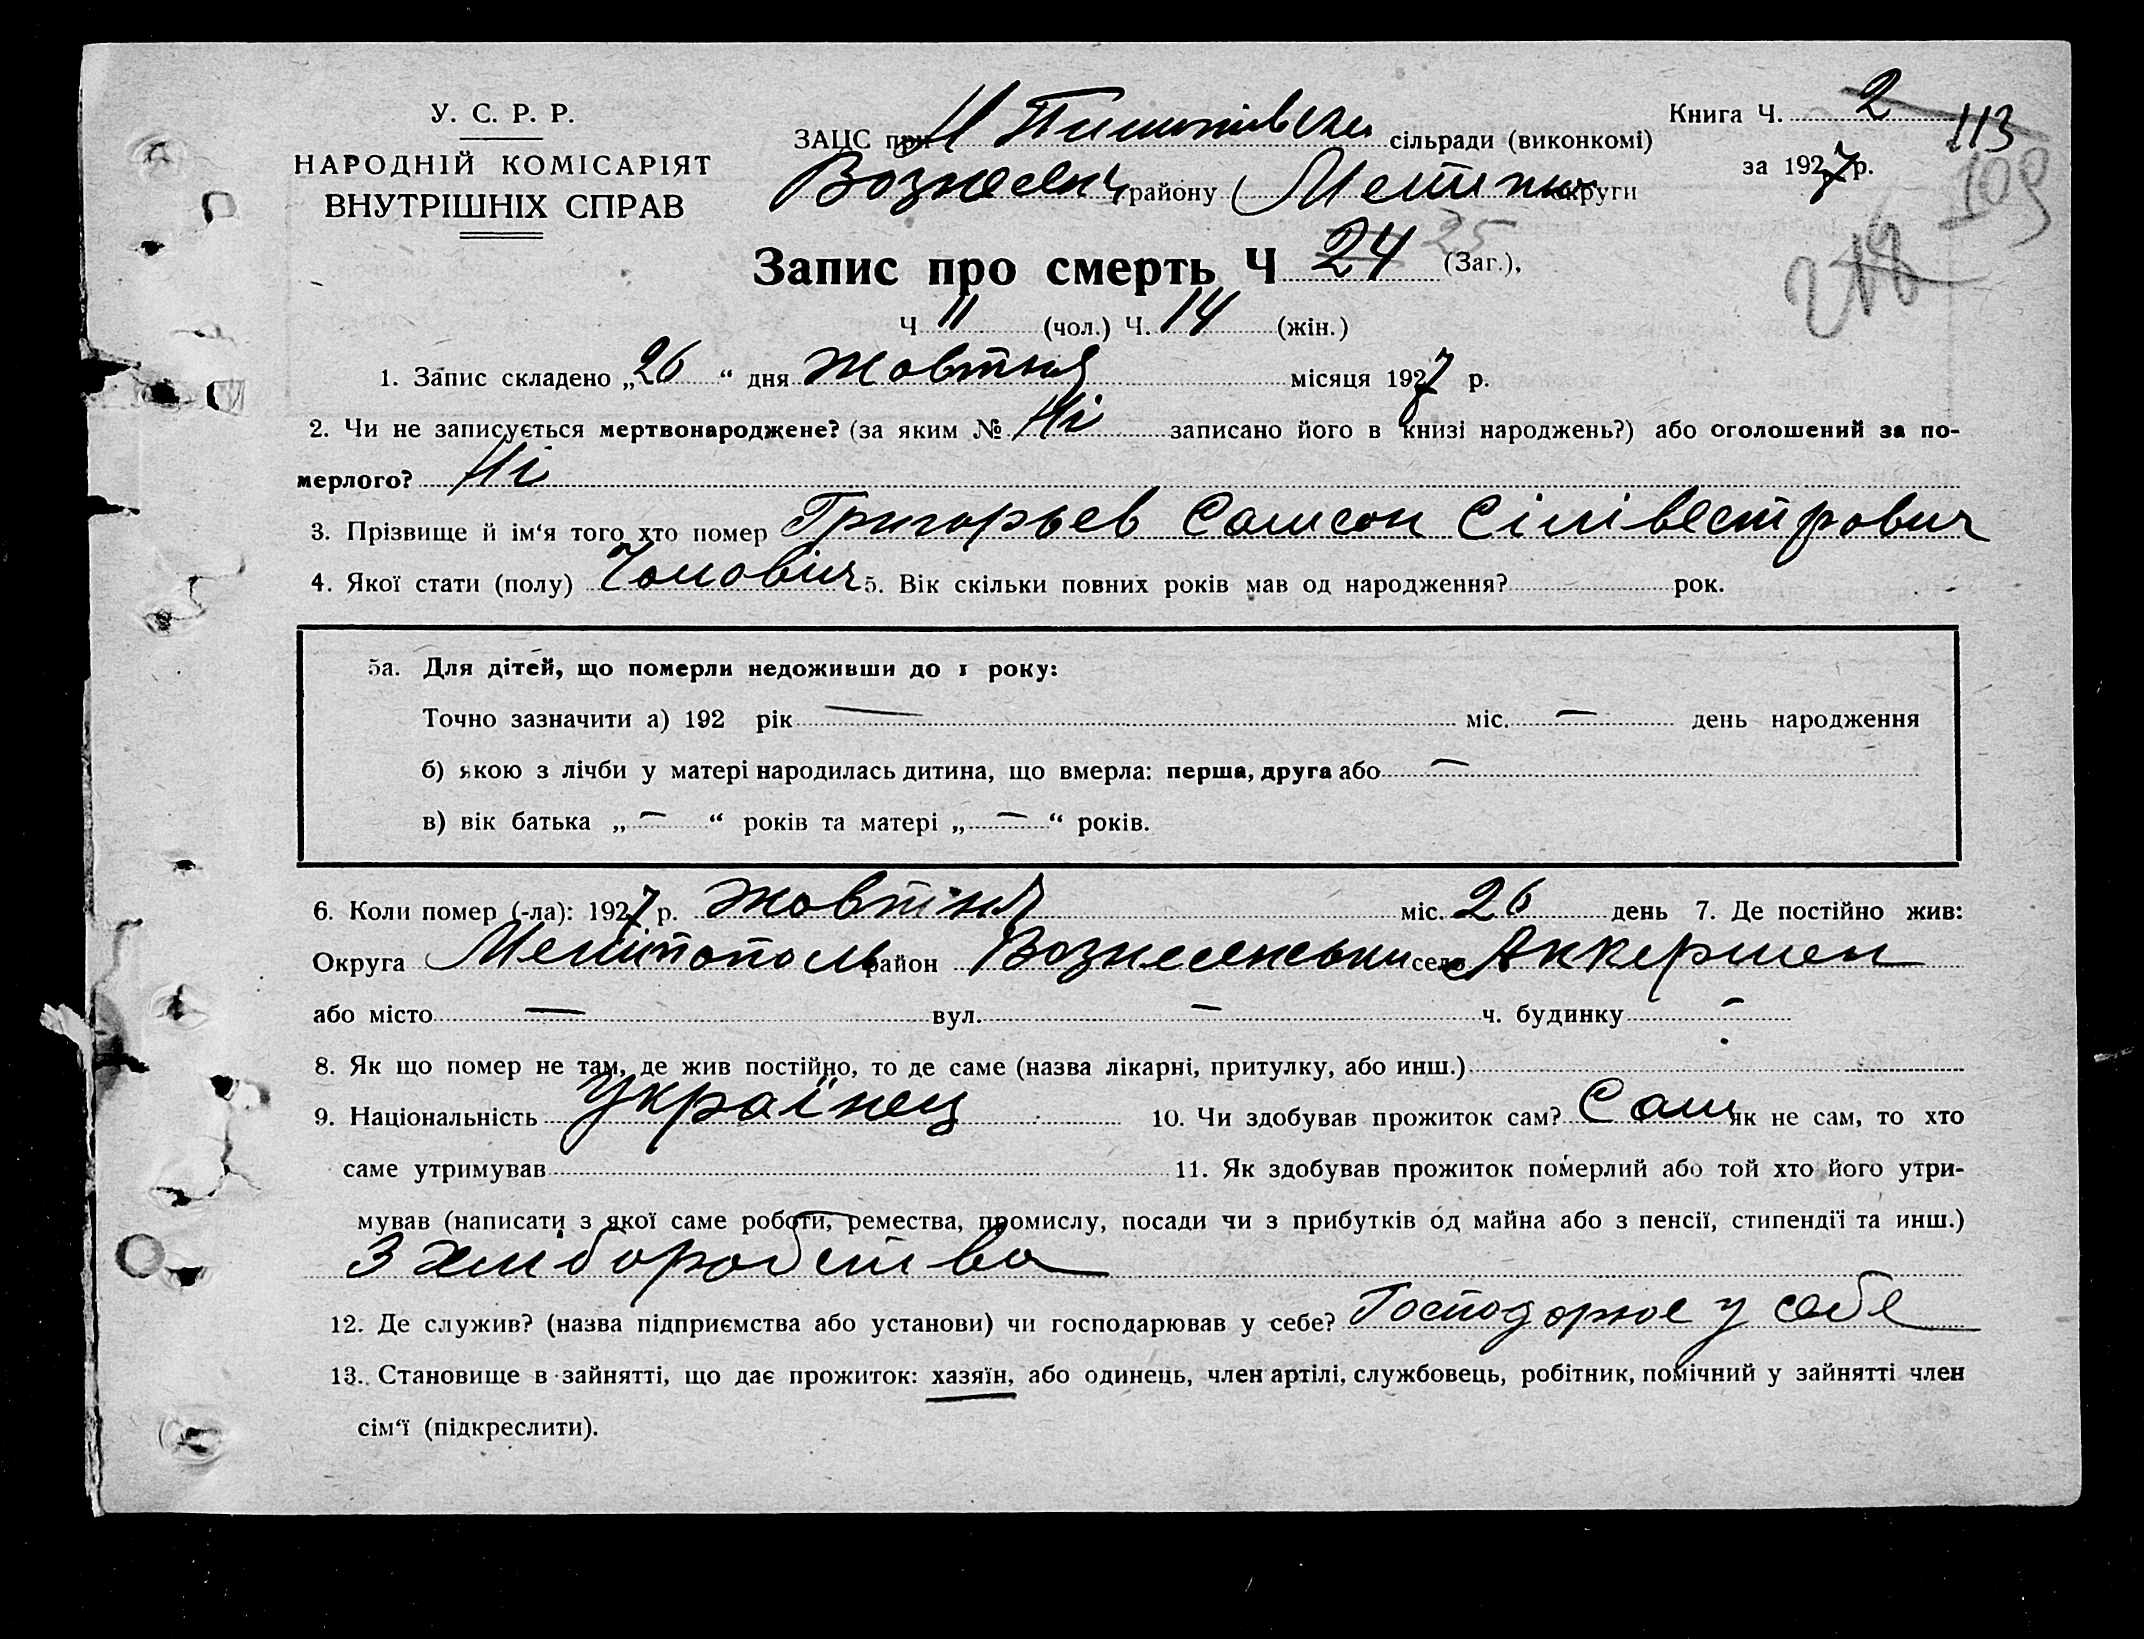 У. С. Р. Р.
НАРОДНІЙ КОМІСАРІЯТ
ВНУТРІШНІХ СПРАВ
Книга Ч. 2 113
за 1927 р. 109
ЗАЦС при Н Пилипівські сільради (виконкомі)
Вознесенс району Меліпк округи
Запис про смерть Ч 24 25 (Заг.),
Ч 11 (чол.) Ч. 14 (жін.)
1. Запис складено „26“ дня Жовтня місяця 1927 р.
2. Чи не записується мертвонароджене? (за яким № Ні записано його в книзі народжень?) або оголошений за по-
мерлого? Ні
3. Прізвище й ім‘я того хто помер Григорьев Самсон Сілівестрович
4. Якої стати (полу) Чоловіч 5. Вік скільки повних років мав од народження? рок.
5а. Для дітей, що померли недоживши до 1 року:
Точно зазначити а) 192 рік — міс. — день народження
б) якою з лічби у матері народилась дитина, що вмерла: перша, друга або —
в) вік батька „—“ років та матері „—“ років.
6. Коли помер (-ла): 1927 р. Жовтня міс. 26 день 7. Де постійно жив:
Округа Мелітополь район Вознесенськи село Аккермен
або місто — вул. — ч. будинку —
8. Як що помер не там, де жив постійно, то де саме (назва лікарні, притулку, або инш.)
9. Національність Українец 10. Чи здобував прожиток сам? Сам як не сам, то хто
саме утримував 11. Як здобував прожиток померлий або той хто його утри-
мував (написати з якої саме роботи, ремества, промислу, посади чи з прибутків од майна або з пенсії, стипендії та инш.)
З хліборобства
12. Де служив? (назва підприємства або установи) чи господарював у себе? Господорює у себе
13. Становище в зайнятті, що дає прожиток: хазяїн, або одинець, член артілі, службовець, робітник, помічний у зайнятті член
сім‘ї (підкреслити).